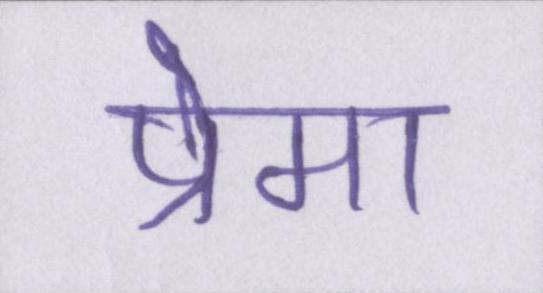 प्रेमा